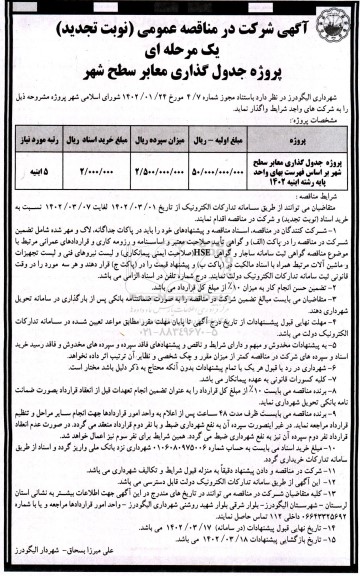 آگهی شرکت در مناقصه عمومی (نوبت تجدید)
یک مرحله ای
پروژه جدول گذاری معابر سطح شهر
شهرداری الیگودرز در نظر دارد باستناد مجوز شماره ۴/۷ مورخ ۱۴۰۲/۰۱/۲۴ شورای اسلامی شهر پروژه مشروحه ذیل
را به شرکت های واجد شرایط واگذار نماید.
مشخصات پروژه:
پروژه مبلغ اولیه – ریال میزان سپرده ریال مبلغ خرید اسناد ریال رتبه مورد نیاز
پروژه جدول گذاری معابر سطح شهر بر اساس فهرست بهای واحد پایه رشته ابنیه ۱۴۰۲ ۵۰/۰۰۰/۰۰۰/۰۰۰ ۲/۵۰۰/۰۰۰/۰۰۰ ۲/۰۰۰/۰۰۰ ۵ ابنیه
شرایط مناقصه:
متقاضیان می توانند از طریق سامانه تدارکات الکترونیک از تاریخ ۱۴۰۲/۰۳/۰۱ لغایت ۱۴۰۲/۰۳/۰۷ نسبت به
خرید اسناد (نوبت تجدید) و شرکت در مناقصه اقدام نمایند.
۱- شرکت کنندگان در مناقصه، اسناد مناقصه و پیشنهادهای خود را باید در پاکت جداگانه، لاک و مهر شده شامل تضمین
شرکت در مناقصه را در پاکت (الف) و گواهی تأیید صلاحیت معتبر و اساسنامه و رزومه کاری و قراردادهای عمرانی مرتبط با
موضوع مناقصه گواهی ثبت سامانه ساجار و گواهی HSE(صلاحیت ایمنی پیمانکاری) و لیست نیروهای فنی و لیست تجهیزات
و ماشین آلات مرتبط همراه با اسناد مالکیت در (پاکت ب) و پیشنهاد قیمت را در (پاکت ج) قرار دهند و هر سه مورد را در وقت
قانونی ثبت سامانه تدارکات الکترونیک دولت نمایند. درج شماره تلفن در اسناد الزامی می باشد.
۲- تضمین حسن انجام کار به میزان ۱۰٪ از مبلغ کل قرارداد می باشد.
۳- متقاضیان می بایست مبالغ تضمین شرکت در مناقصه را به صورت ضمانتنامه بانکی پس از بارگذاری در سامانه تحویل
شهرداری دهند.
۴- مهلت نهایی قبول پیشنهادات از تاریخ درج آگهی تا پایان مهلت مقرر مطابق مواعد تعیین شده در سامانه تدارکات
الکترونیک دولت می باشد.
۵- به پیشنهادات مخدوش و مبهم و دارای شرایط و ناقص و پیشنهادهای فاقد سپرده و سپرده های مخدوش و فاقد رسید خرید
اسناد و سپرده های شرکت در مناقصه کمتر از میزان مقرر و چک شخصی و نظایر آن ترتیب اثر داده نخواهد شد.
۶- شهرداری در رد یا قبول هر یک یا تمام پیشنهادات بدون آنکه محتاج به ذکر دلیل باشد مختار است.
۷- کلیه کسورات قانونی به عهده پیمانکار می باشد.
۸- برنده مناقصه می بایست ۱۰٪ از مبلغ کل قرارداد را به عنوان تضمین انجام تعهدات قبل از انعقاد قرارداد بصورت ضمانت
نامه بانکی تحویل شهرداری نماید.
۹- برنده مناقصه می بایست ظرف مدت ۴۸ ساعت پس از اعلام به واحد امور قراردادها جهت انجام سایر مراحل و تنظیم
قرارداد مراجعه نماید. در غیر اینصورت سپرده آن به نفع شهرداری ضبط و با نفر دوم قرارداد منعقد می گردد. در صورت عدم انعقاد
قرارداد نفر دوم سپرده آن نیز به نفع شهرداری ضبط می گردد. همین شرایط برای نفر سوم نیز اعمال خواهد شد.
۱۰- مبلغ خرید اسناد می بایست به حساب شماره ۰۱۰۶۰۸۰۹۷۵۰۰۶ شهرداری نزد بانک ملی واریز گردد و اسناد از طریق
سامانه تدارکات خریداری گردد.
۱۱- شرکت در مناقصه و دادن پیشنهاد دقیقاً به منزله قبول شرایط و تکالیف شهرداری می باشد.
۱۲- این آگهی از طریق سامانه تدارکات الکترونیک دولت قابل دسترسی می باشد.
۱۳- کلیه متقاضیان شرکت در مناقصه می توانند در تاریخ های مندرج در این آگهی جهت اطلاعات بیشتر به نشانی استان
لرستان – شهرستان الیگودرز- بلوار شرقی بلوار شهید روشنی شهرداری الیگودرز – واحد امور قراردادها مراجعه و یا با شماره
۰۶۶۴۳۳۲۵۶۹۲ داخلی ۱۱۲ تماس حاصل نمایند.
۱۴- تاریخ نهایی قبول پیشنهادات (در سامانه) ۱۴۰۲/۰۳/۱۷ می باشد.
۱۵- تاریخ بازگشایی پیشنهادات ۱۴۰۲/۰۳/۱۸ می باشد.
علی میرزا بسحاق- شهردار الیگودرز